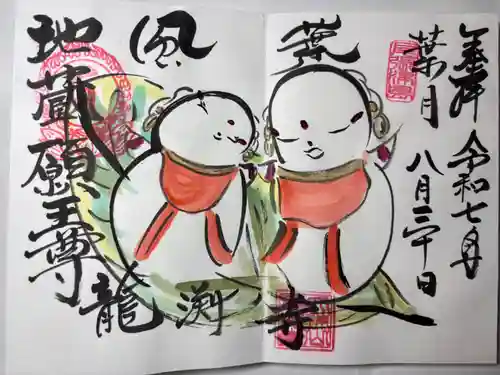 奉拝 令和七年
葉月 八月三十日
葉
風
地蔵願王尊
龍渕寺